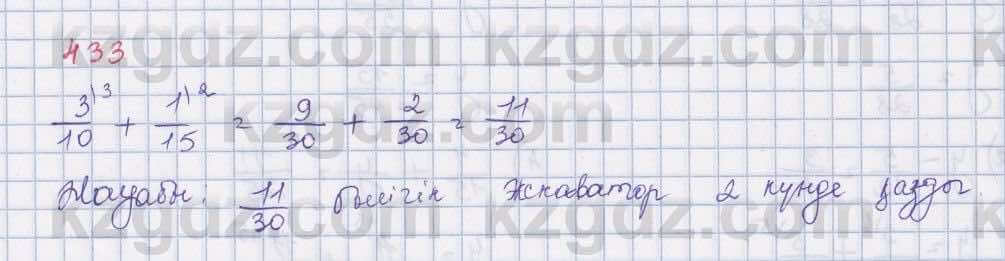 433
3\3/10 + 1\2/15 = 9/30 + 2/30 = 11/30
Жауабы: 11/30 бөлігін экскаватор 2 күнде қазды.
kzgdz.com kzgdz.com
kzgdz.com
kzgdz.com kzgdz.com